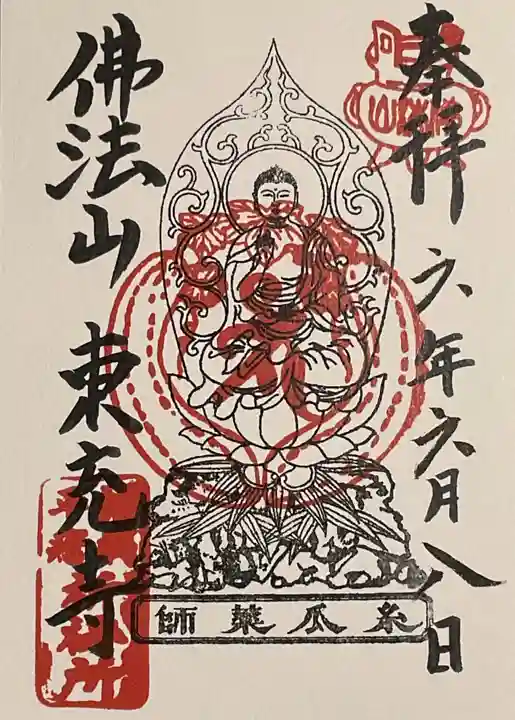 奉拝
六年六月八日
糸瓜薬師
佛法山 東充寺